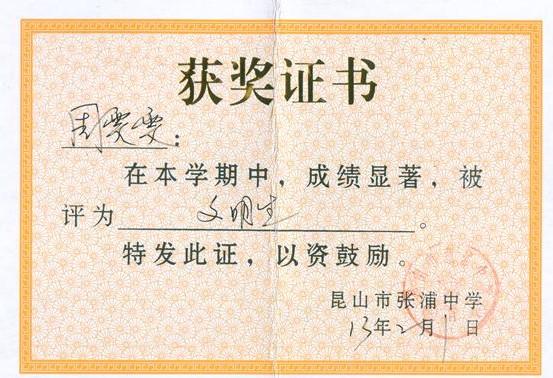 获奖证书
周雯雯:
在本学期中，成绩显著，被
评为 文明生 。
特发此证，以资鼓励。
昆山市张浦中学
13年2月1日